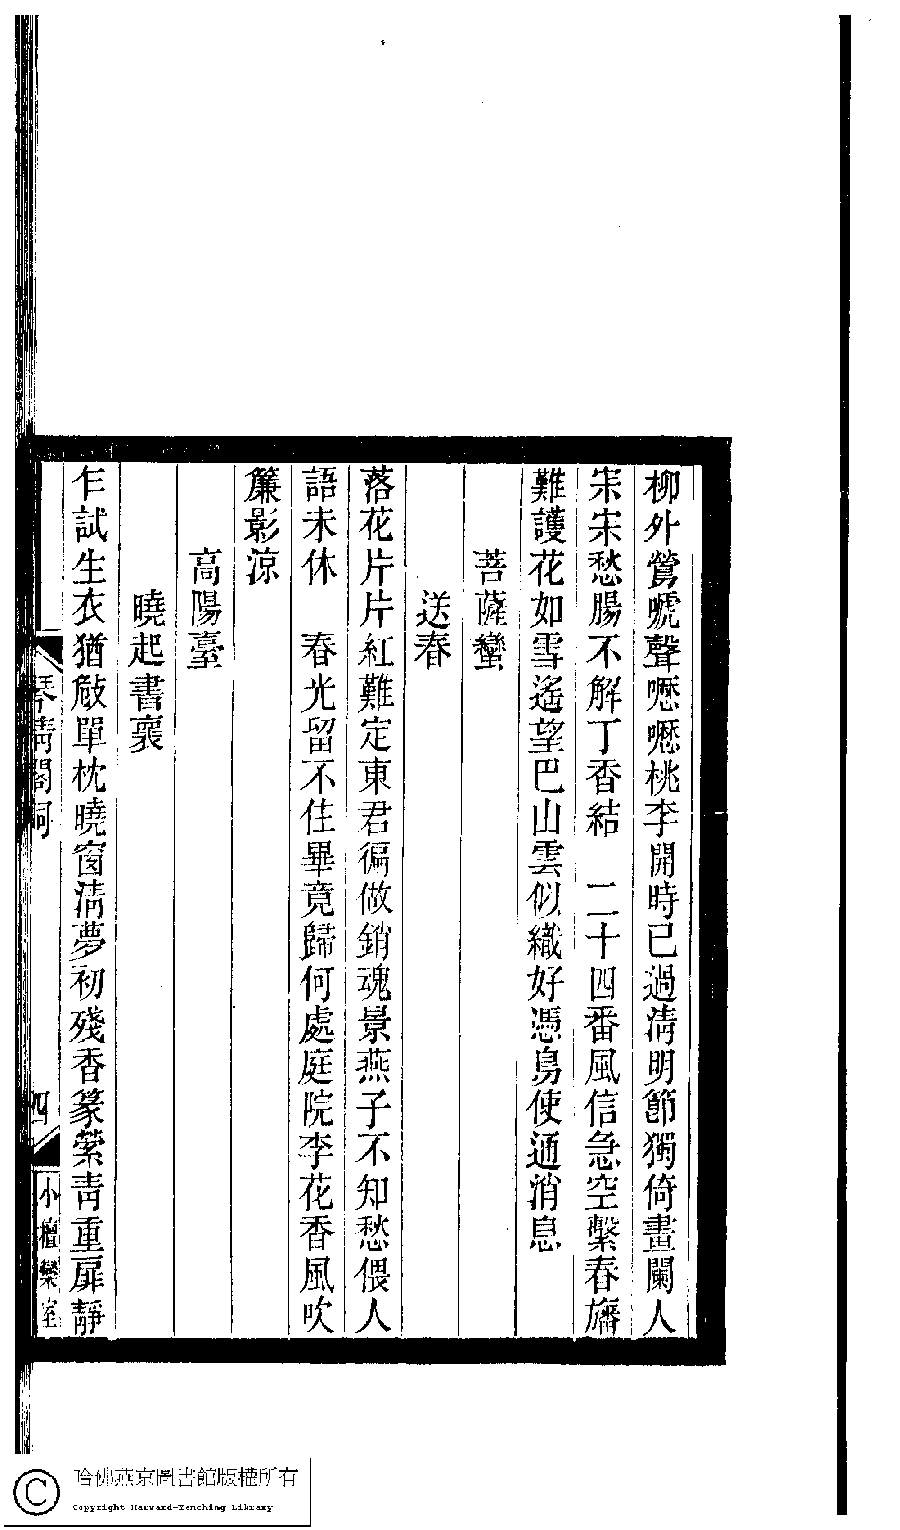 柳外鶯嗁聲嚦嚦桃李開時已過清明節獨倚畫闌人
寀寀愁腸不解丁香結　二十四番風信急空繫春旛
難護花如雪遙望巴山雲似織好憑鳥使通消息
菩薩蠻
送春
落花片片紅難定東君徧做銷魂景燕子不知愁偎人
語未休　春光留不住畢竟歸何處庭院李花香風吹
簾影涼
高陽臺
曉起書褱
乍試生衣猶敧單枕曉窗淸夢初殘香篆縈靑重扉靜
琴淸閣詞
四
小檀欒室
哈佛燕京圖書館版權所有
Copyright Harvard-Yenching Library